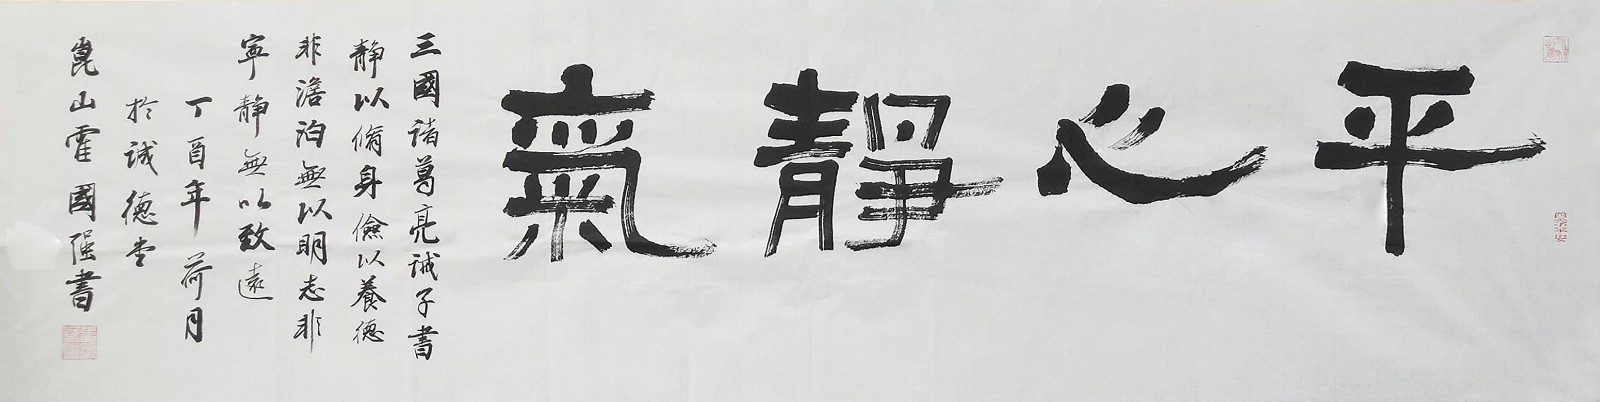 平心靜氣
三國诸葛亮诫子書
静以脩身儉以養德
非澹泊無以明志非
寧静無以致遠
丁酉年荷月
於诚德堂
崑山霍國强書